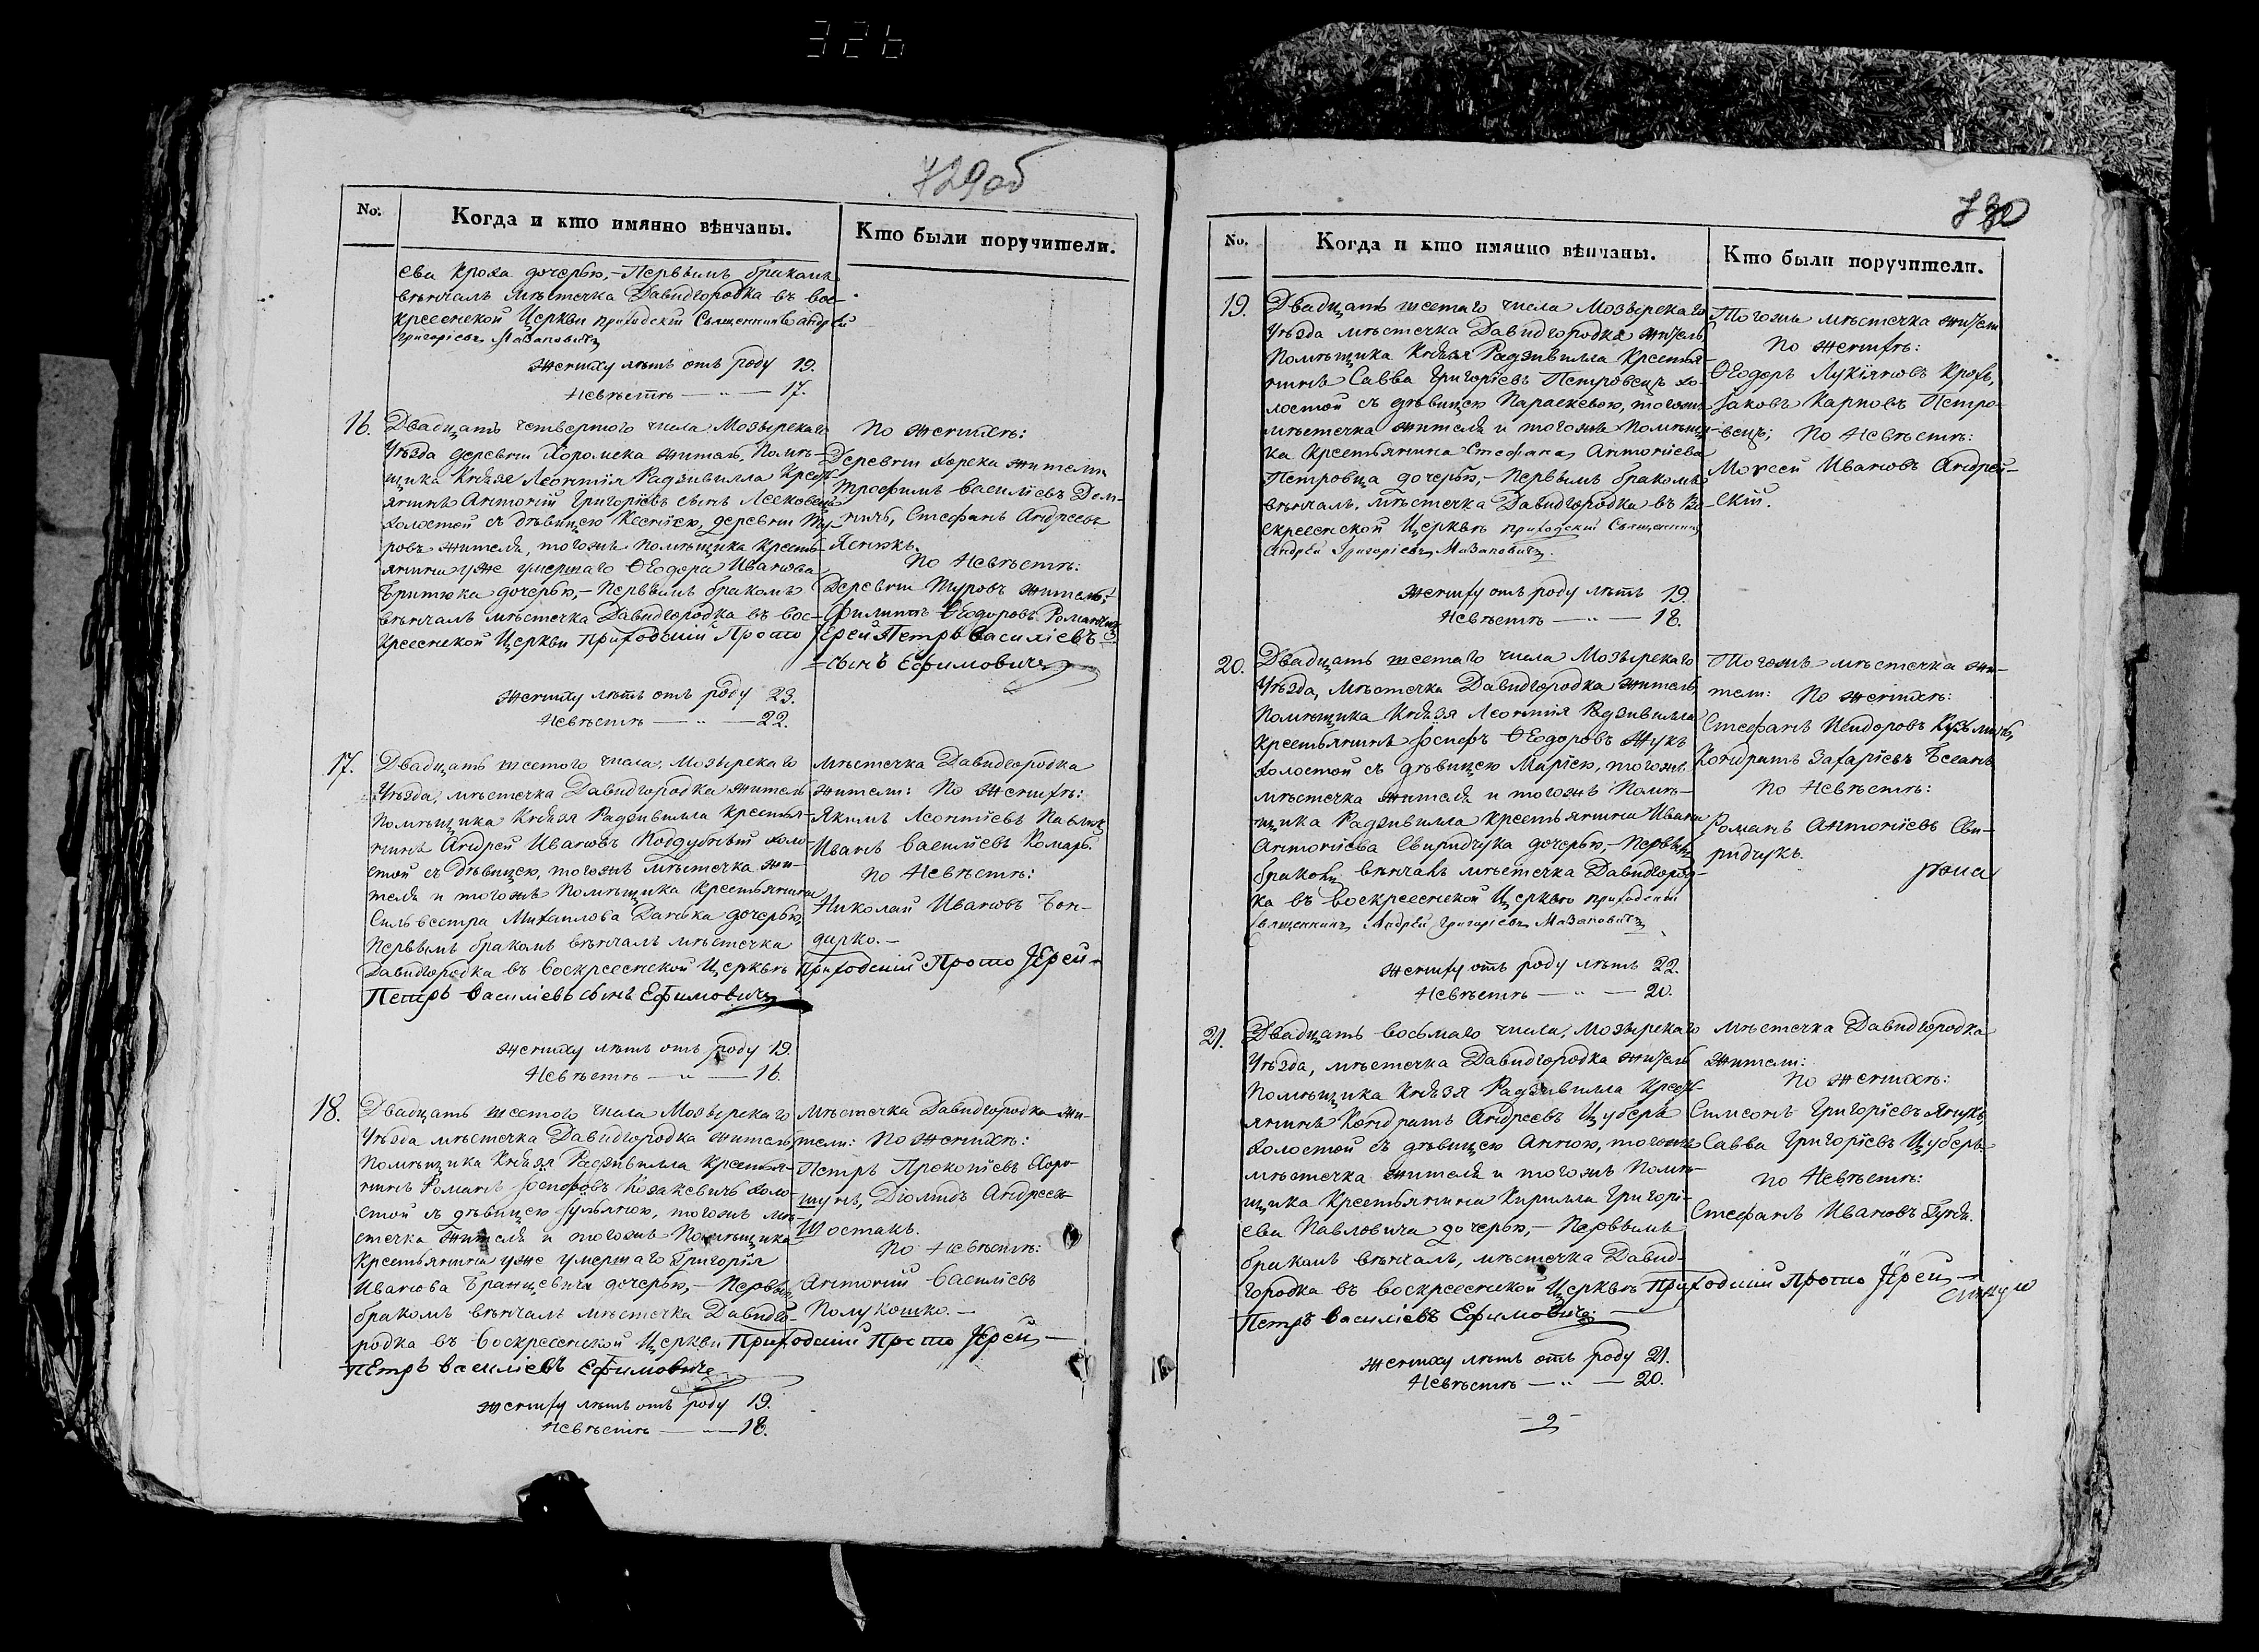 326
729об
No.
Когда и кто имянно вѣнчаны.
Кто были поручители.
ева Кроха дочерью, – Первымъ бракамъ
вѣнчалъ мѣстечка Давидгородка въ Вос-
кресенской Церкви приходскій Священникъ Андрей
Григоріевъ Мазановичъ
Жениху лѣтъ отъ роду 19.
Невѣстѣ — „ — 17.
16.
Двадцать четвертого числа Мозырекаго
Уѣзда деревни Хоромска житель, Помѣ-
щика Князя Леонтія Радзивилла Крест-
янинъ Антоній Григоріевъ сынъ Лесковецъ
холостой съ дѣвицею Ксеніею, деревни Ту-
ровъ жителя, тогожъ помѣщика кресть-
янина уже умершаго Ѳеодора Иванова
Бритюка дочерью, – Первымъ бракомъ
вѣнчалъ мѣстечка Давидгородка въ Вос-
кресенской Церкви Приходскій Прото Іерей Петръ Василіевъ
сынъ Ефимовичъ
По женихѣ:
Деревни Хорска жители
Трофимъ Василіевъ Дом-
ничъ, Стефанъ Андреевъ
Ясенюкъ.
По Невѣстѣ:
Деревни Туровъ житель:
Филиппъ Ѳеодоровъ Романчукъ
Жениху лѣтъ отъ роду 23.
Невѣстѣ — „ — 22.
17.
Двадцать шестого числа, Мозырекаго
Уѣзда, мѣстечка Давидгородка житель
Помѣщика Князя Радзивилла крестья-
нинъ Андрей Ивановъ Поддубный холо-
стой съ дѣвицею, тогожъ мѣстечка жи-
теля и тогожъ Помѣщика крестьянина
Сильвестра Михаилова Данька дочерью,
Первымъ бракомъ вѣнчалъ мѣстечка
Давидгородка въ Воскресенской Церквѣ Приходскій Прото Іерей
Петръ Василіевъ сынъ Ефимовичъ
мѣстечка Давидгородка
жители: По Женихѣ:
Якимъ Леонтіевъ Павлюкъ
Иванъ Василіевъ Комаръ.
По Невѣстѣ:
Николай Ивановъ Бон-
дарко. –
Жениху лѣтъ отъ роду 19.
Невѣстѣ — „ — 16.
18.
Двадцать шестого числа Мозырекаго
Уѣзда мѣстечка Давидгородка житель
Помѣщика Князя Радзивилла крестья-
нинъ Романъ Іосифовъ Козакевичъ холо-
стой съ дѣвицею Іульяною, тогожъ мѣ-
стечка жителя и тогожъ Помѣщика
Крестьянина уже умершаго Григорія
Иванова Бранцевича дочерью, – Первымъ
бракомъ вѣнчалъ мѣстечка Давидго-
родка въ Воскресенской Церкви Приходскій Прото Іерей
Петръ Василіевъ Ефимовичъ
Мѣстечка Давидгородка жи-
тели: По женихѣ:
Петръ Прокопіевъ Хоро-
шунъ, Діомидъ Андреевъ
Шостакъ.
По Невѣстѣ:
Антоній Василіевъ
Полукошко. –
Жениху лѣтъ отъ роду 19.
Невѣстѣ — „ — 18.
730
No.
Когда и кто имянно вѣнчаны.
Кто были поручители.
19.
Двадцать шестаго числа Мозырекаго
Уѣзда мѣстечка Давидгородка житель
Помѣщика Князя Радзивилла Крестья-
нинъ Савва Григоріевъ Петровецъ хо-
лостой съ дѣвицею Параскевою, тогожъ
мѣстечка жителя и тогожъ Помѣщи-
ка Крестьянина Стефана Антоніева
Петровца дочерью, – Первымъ бракомъ
вѣнчалъ, мѣстечка Давидгородка въ Во-
скресенской Церквѣ приходскій Священникъ
Андрей Григоріевъ Мазановичъ.
Тогожъ мѣстечка жители
По женихѣ:
Ѳеодоръ Лукіяновъ Крохъ,
Іаковъ Карповъ Петро-
вецъ; По Невѣстѣ:
Моисей Ивановъ Андрей-
скій.
Жениху отъ роду лѣтъ 19.
Невѣстѣ — „ — 18.
20.
Двадцать шестаго числа Мозырекаго
Уѣзда, мѣстечка Давидгородка житель,
Помѣщика Князя Леонтія Радзивилла
Крестьянинъ Іосифъ Ѳеодоровъ Жукъ
холостой съ дѣвицею Маріею, тогожъ
мѣстечка жителя и тогожъ Помѣ-
щика Радзивилла крестьянина Ивана
Антоніева Свиридчука дочерью, – Первымъ
бракомъ вѣнчалъ мѣстечка Давидгород-
ка въ Воскресенской Церквѣ приходскій
Священникъ Андрей Григоріевъ Мазановичъ
Тогожъ мѣстечка жи-
тели: По женихѣ:
Стефанъ Исидоровъ Кузьмичъ,
Кондратъ Захаріевъ Бесанъ
По Невѣстѣ:
Романъ Антоніевъ Сви-
ридчукъ.
Жениху отъ роду лѣтъ 22.
Невѣстѣ — „ — 20.
21.
Двадцать восьмаго числа, Мозырекаго
Уѣзда, мѣстечка Давидгородка житель
Помѣщика Князя Радзивилла Крест-
янинъ Кондратъ Андреевъ Цуберъ
холостой съ дѣвицею Анною, тогожъ
мѣстечка жителя и тогожъ Помѣ-
щика Крестьянина Кирилла Григорі-
ева Павловича дочерью, – Первымъ
бракомъ вѣнчалъ, мѣстечка Давид-
городка въ Воскресенской Церквѣ Приходскій Прото Іерей
Петръ Василіевъ Ефимовичъ
Мѣстечка Давидгородка
Жители:
По женихѣ:
Симеонъ Григоріевъ Янукъ,
Савва Григоріевъ Цуберъ
По Невѣстѣ:
Стефанъ Ивановъ
Жениху лѣтъ отъ роду 21.
Невѣстѣ — „ — 20.